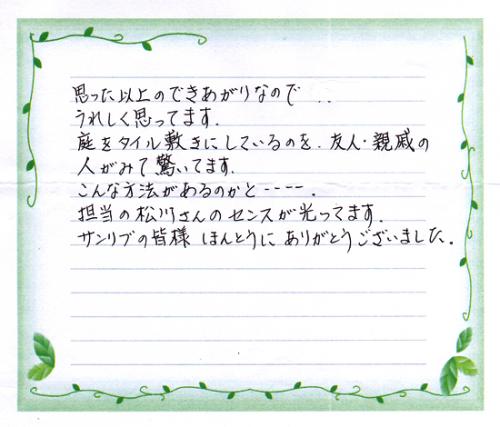 思った以上のできあがりなので ..
うれしく思ってます.
庭をタイル敷きにしているのを.友人・親戚の
人がみて驚いてます.
こんな方法があるのかと----.
担当の松川さんのセンスが光ってます.
サンリブの皆様 ほんとうに ありがとうございました.